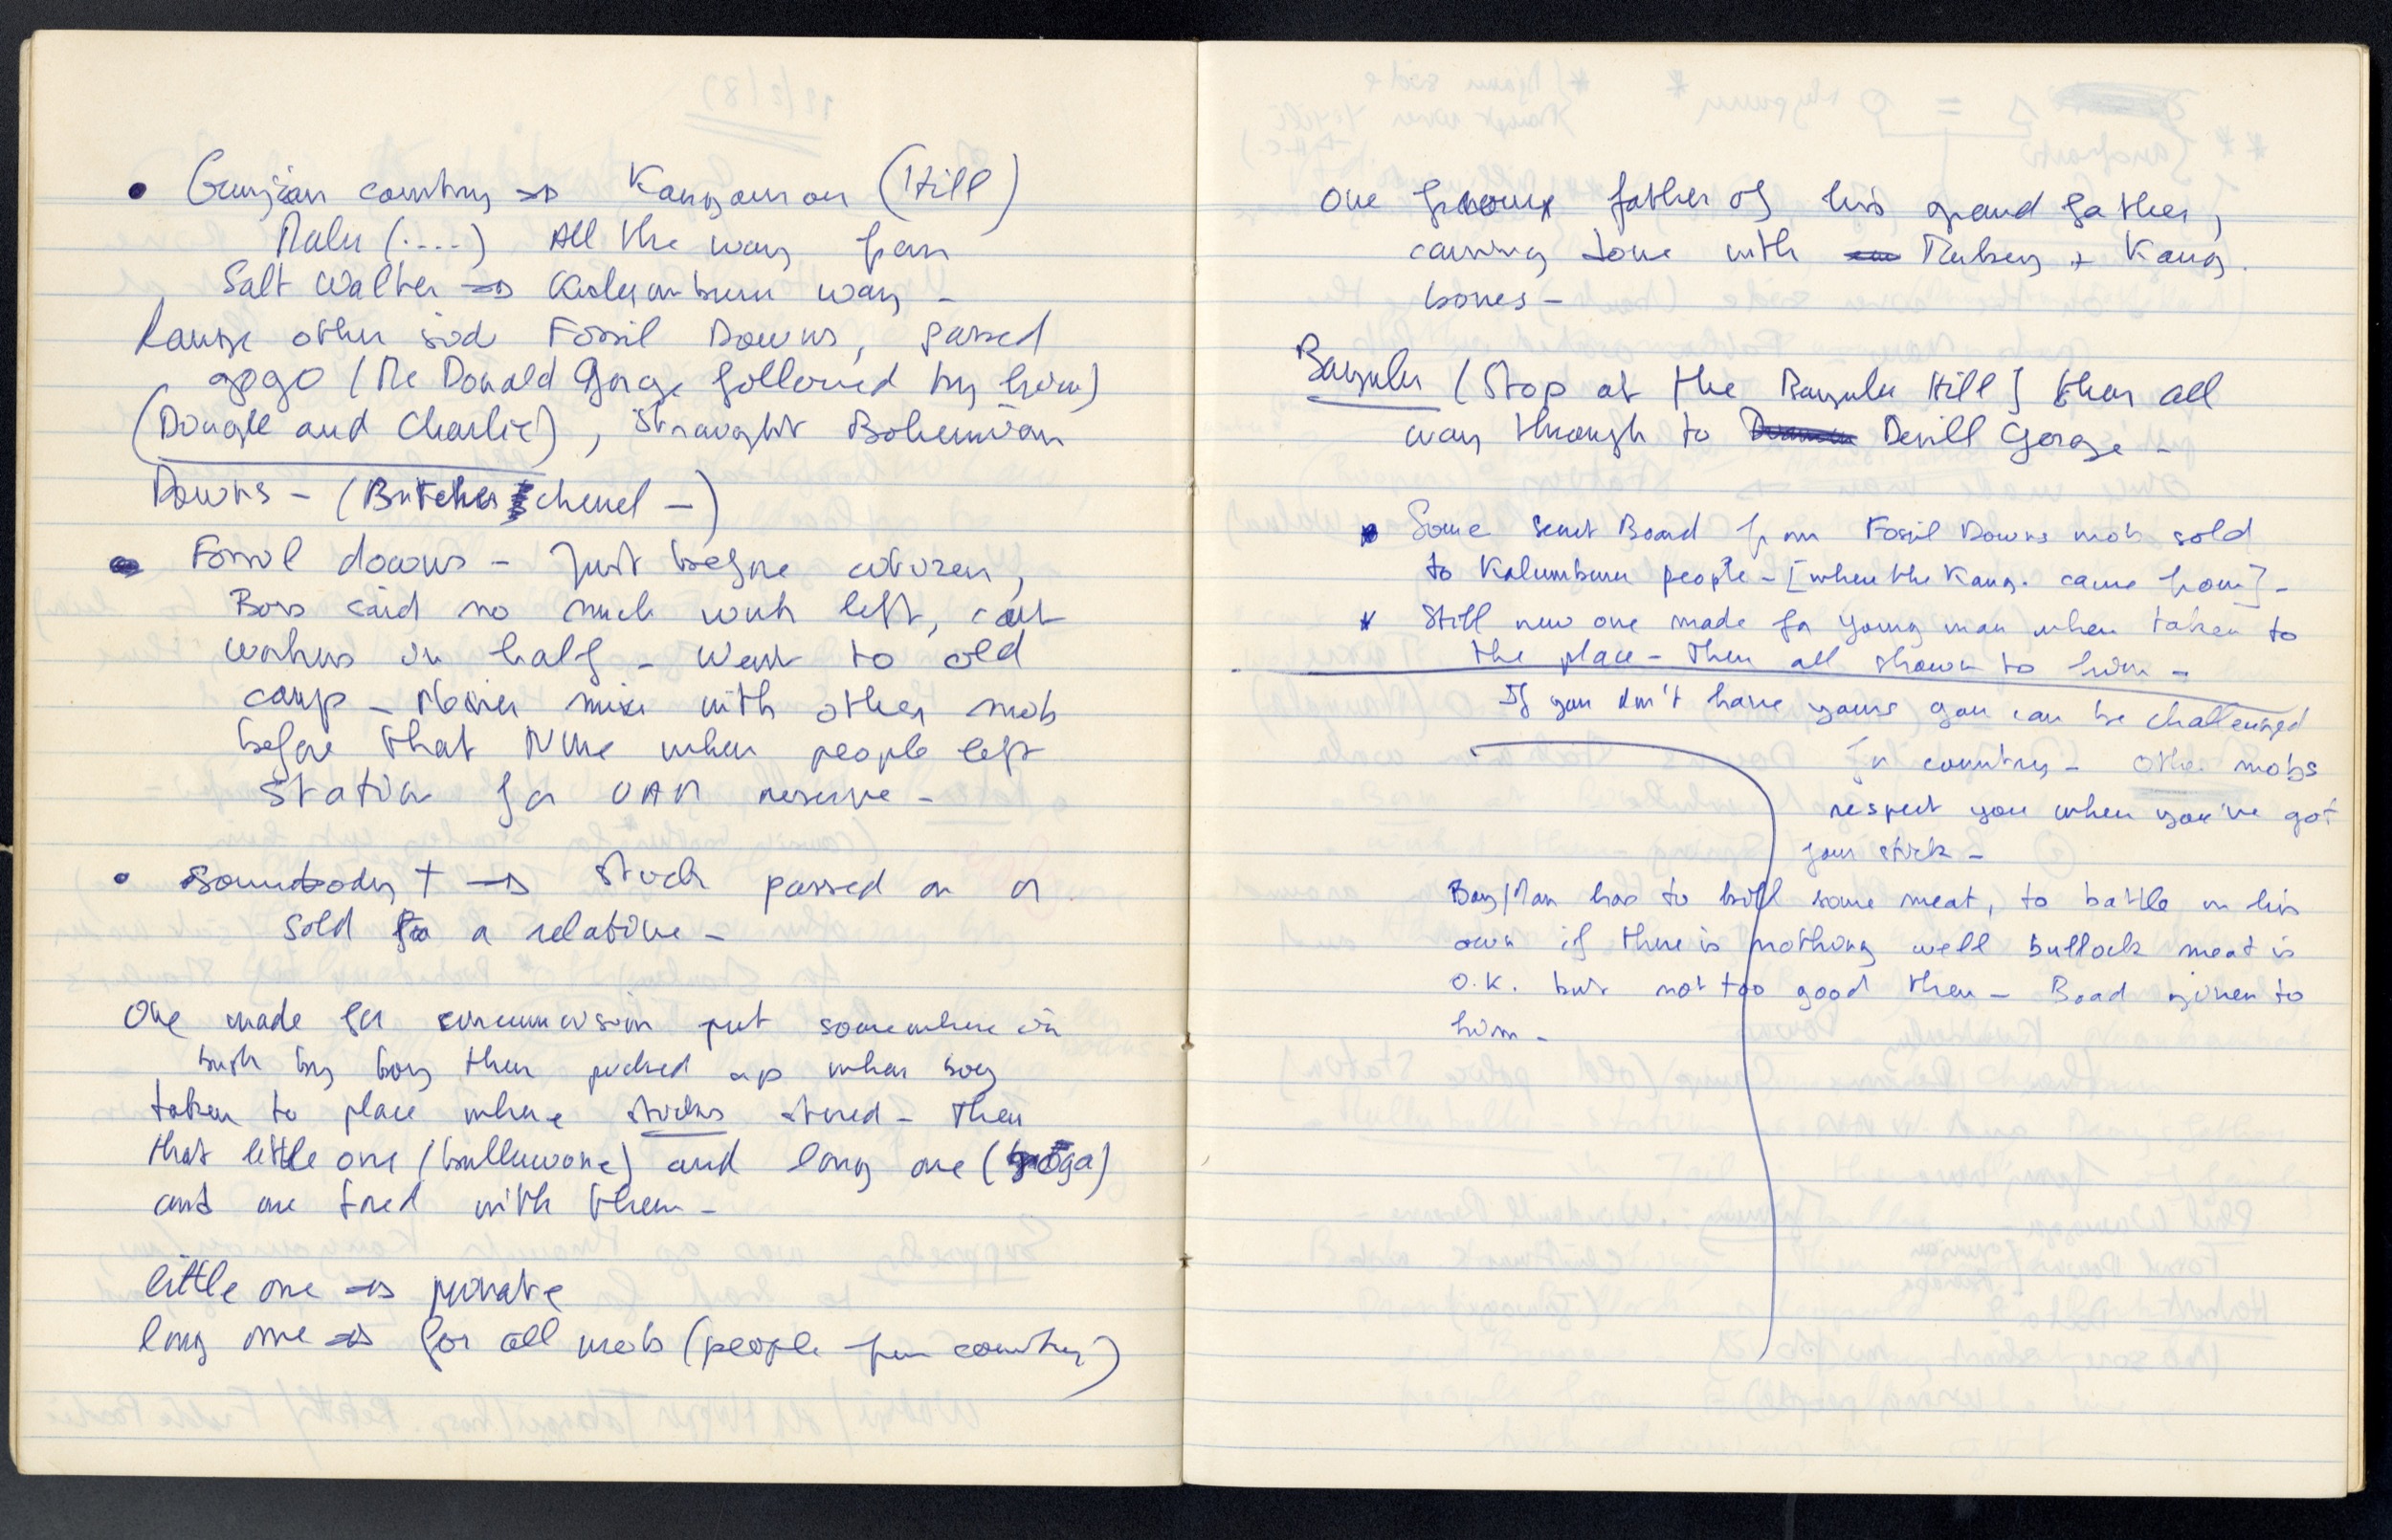 • Gunjian country → Kangouroou (Hill)
Malu (....) All the way from
Salt Walter → Kalumburu way -
Range other sid Fossil Downs, passed
gogo (Mc Donald Gorge followed by him)
(Dougall and Charlie), Straught Bohemian
Downs - (Butcher chenel -)
• Fossil downs - Just before citizen,
Boss said no much work left, cut
workers in half - Went to old
camp - Never mix with other mob
before that time when people left
station for UAM reserve -
• somebody † → stick passed on or
sold to a relative -
One made for circumcision put somewhere in
bush by boy then picked up when boy
taken to place where sticks stored - Then
that little one (bulluwone) and long one
and are tied with them -
little one → private
long one → for all mob (people from country)
One from father of his grand father,
coming done with Kang.
bones -
Bayulu (Stop at the Bayulu Hill] then all
way through to Devill Gorge -
* Some secret Board from Fossil Downs mob sold
to Kalumburu people - [where the Kang. came from] -
* Still new one made for young man when taken to
the place - Then all shown to him -
If you don't have yours you can be challenged
for country - Other mobs
respect you when you've got
your stick -
Boy/Man has to kill some meat, to battle on his
own if there is nothing well bullock meat is
O.K. but not too good then - Board given to
him -